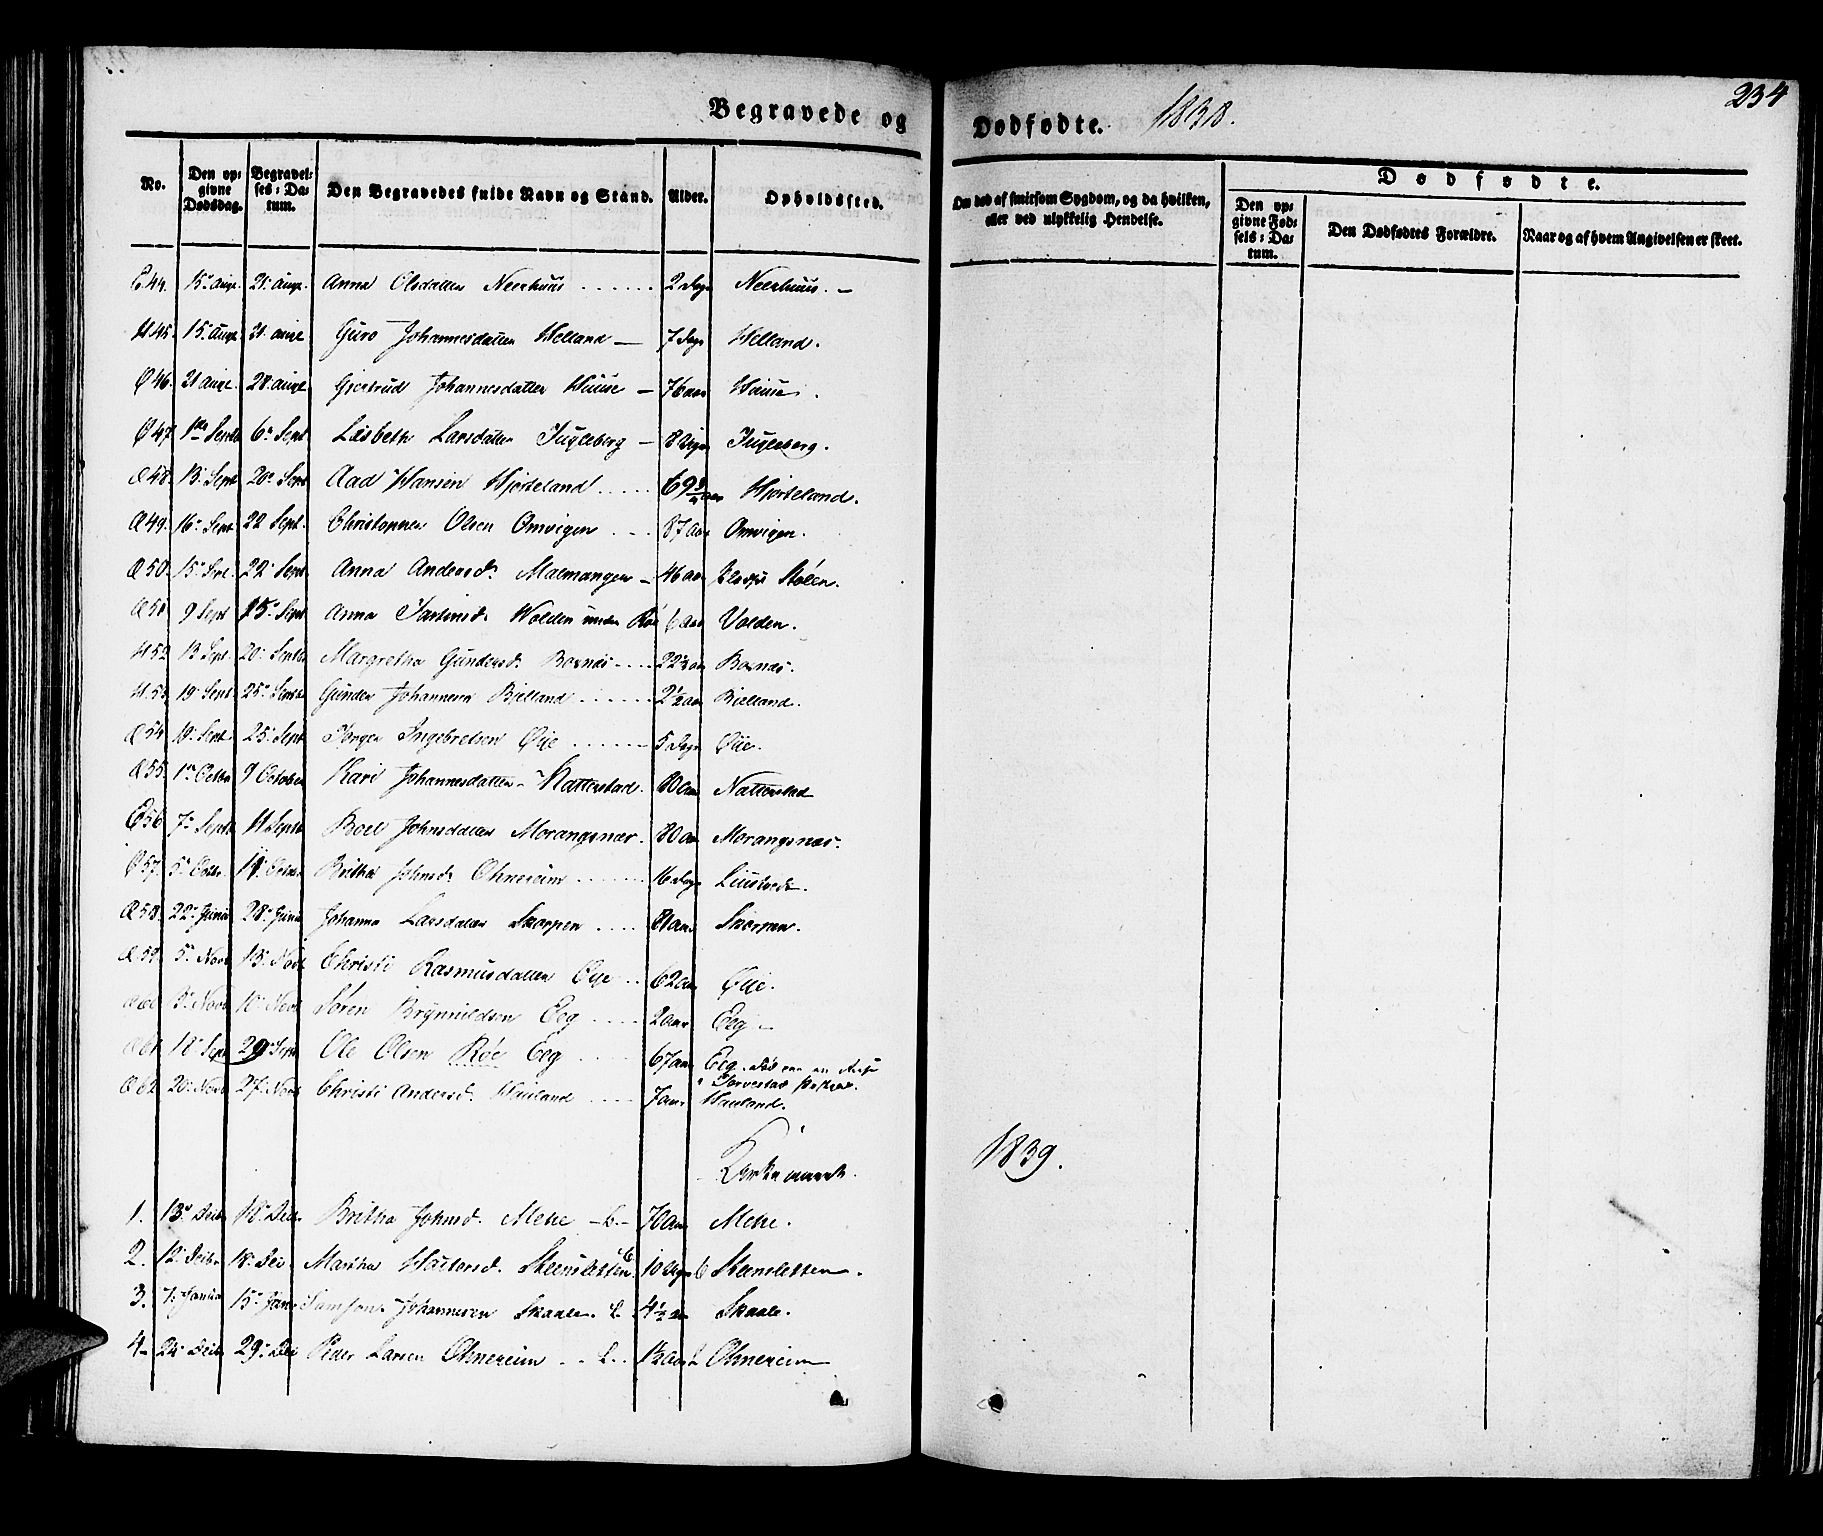 Begravede og Dødfødte. 1838. 234
No. Den opgivne Dødsdag. Begravelses-Datum. Den Begravedes fulde Navn og Stand. Alder. Opholdssted.
Om død af smitsom Sygdom, og da hvilken, eller ved ulykkelig Hendelse.
Dødfødte.
Den opgivne Fødsels-Datum. Den Dødfødtes Forældre. Naar og af hvem Angivelsen er skeet.
44. 15 aug. 21 aug. Anna Olsdatter Neerhuus 2 Dage Neerhuus.
45. 15 aug. 21 aug. Guro Johannesdatter Helland 7 Dage Helland.
46. 21 aug. 28 aug. Gjertrud Johannesdatter Huuse 76 aar Huuse.
47. 1ste Septb 6 Sept. Lisbeth Larsdatter Fugleberg 8 Fugleberg.
48. 13 Sept 20 Sept Aad Hansen Hjorteland 69 aar Hjorteland.
49. 16 Sept. 22 Sept. Christopher Olsen Omvigen 87 aar Omvigen.
50. 15 22 Sept. Anna Andersd. Malmangen 46 aar Stølen.
51 9 Sept 15 Sept Anna Wolden under Røe 6 aar Volden.
52 13 Sept. 20 Septb Margretha Gundersd. Bosnæs 22½ aar Bosnæs.
53 19 Sept 25 Septb Gunder Johannesen Bielland 2½ aar Bielland.
54 19 Sept. 25 Sept Jørgen Ingebretsen Øie 5 Dage Øie.
55. 1ste Octbr 9 October Kari Johannesdatter Natterstad. 80 aar Natterstad
56 7 Septb 11 Septb Boel Johnsdatter Morangsnæs. 80 aar Morangsnæs.
57. 5 Octbr. 11 Octbr. Britha Johnsd. Ohnereim 16 Dage
58. 22 Junii 28 Junii Johanna Larsdatter Skorpen 81 aar Skorpen.
59. 5 Novb 13 Novb Christi Rasmusdatter Øje 62 aar Øie.
3 Novb 10 Novb Søren Brynnildsen Eeg 2 aar Eeg
61 18 Sept 29 Septb Ole Olsen Røe Eeg 67 aar Eeg
62 20 Novb 27 Novb Christi Andersd. Hauland 7 aar Hauland.
1839.
1. 13 Decb 18 Decb. Britha Johnsd. Mehe 70 aar Mehe.
2. 12 Decbr 18 Dec Martha Skeensletten 10 Skeensletten.
3. 7 Janua 15 Jan Samson Johannesen Skaale 4½ aar Skaale.
4 24 Decb 29 Dec Peder Larsen Ohnereim 13 aar Ohnereim